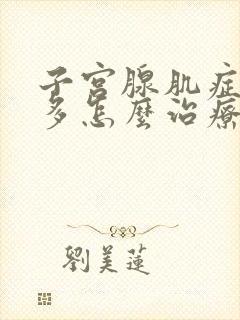 子宮腺肌症
多怎麼治療
劉美蓮